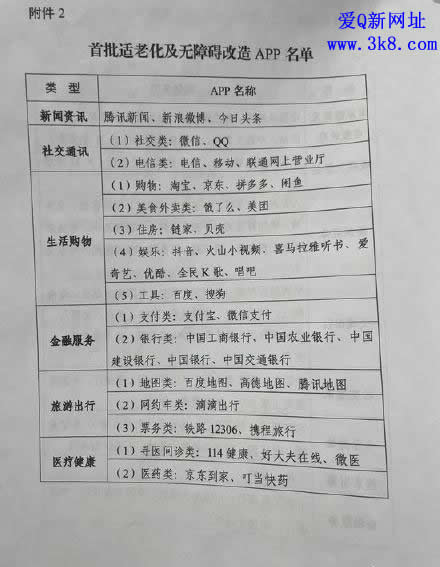 附件 2
爱Q新网址
www.3k8.com
首批适老化及无障碍改造 APP 名单
类 型
APP 名称
新闻资讯
腾讯新闻、新浪微博、今日头条
社交通讯
(1) 社交类: 微信、QQ
(2) 电信类: 电信、移动、联通网上营业厅
生活购物
(1) 购物: 淘宝、京东、拼多多、闲鱼
(2) 美食外卖类: 饿了么、美团
(3) 住房: 链家、贝壳
(4) 娱乐: 抖音、火山小视频、喜马拉雅听书、爱
奇艺、优酷、全民 K 歌、唱吧
(5) 工具: 百度、搜狗
金融服务
(1) 支付类: 支付宝、微信支付
(2) 银行类: 中国工商银行、中国农业银行、中国
建设银行、中国银行、中国交通银行
旅游出行
(1) 地图类: 百度地图、高德地图、腾讯地图
(2) 网约车类: 滴滴出行
(3) 票务类: 铁路 12306、携程旅行
医疗健康
(1) 寻医问诊类: 114 健康、好大夫在线、微医
(2) 医药类: 京东到家、叮当快药